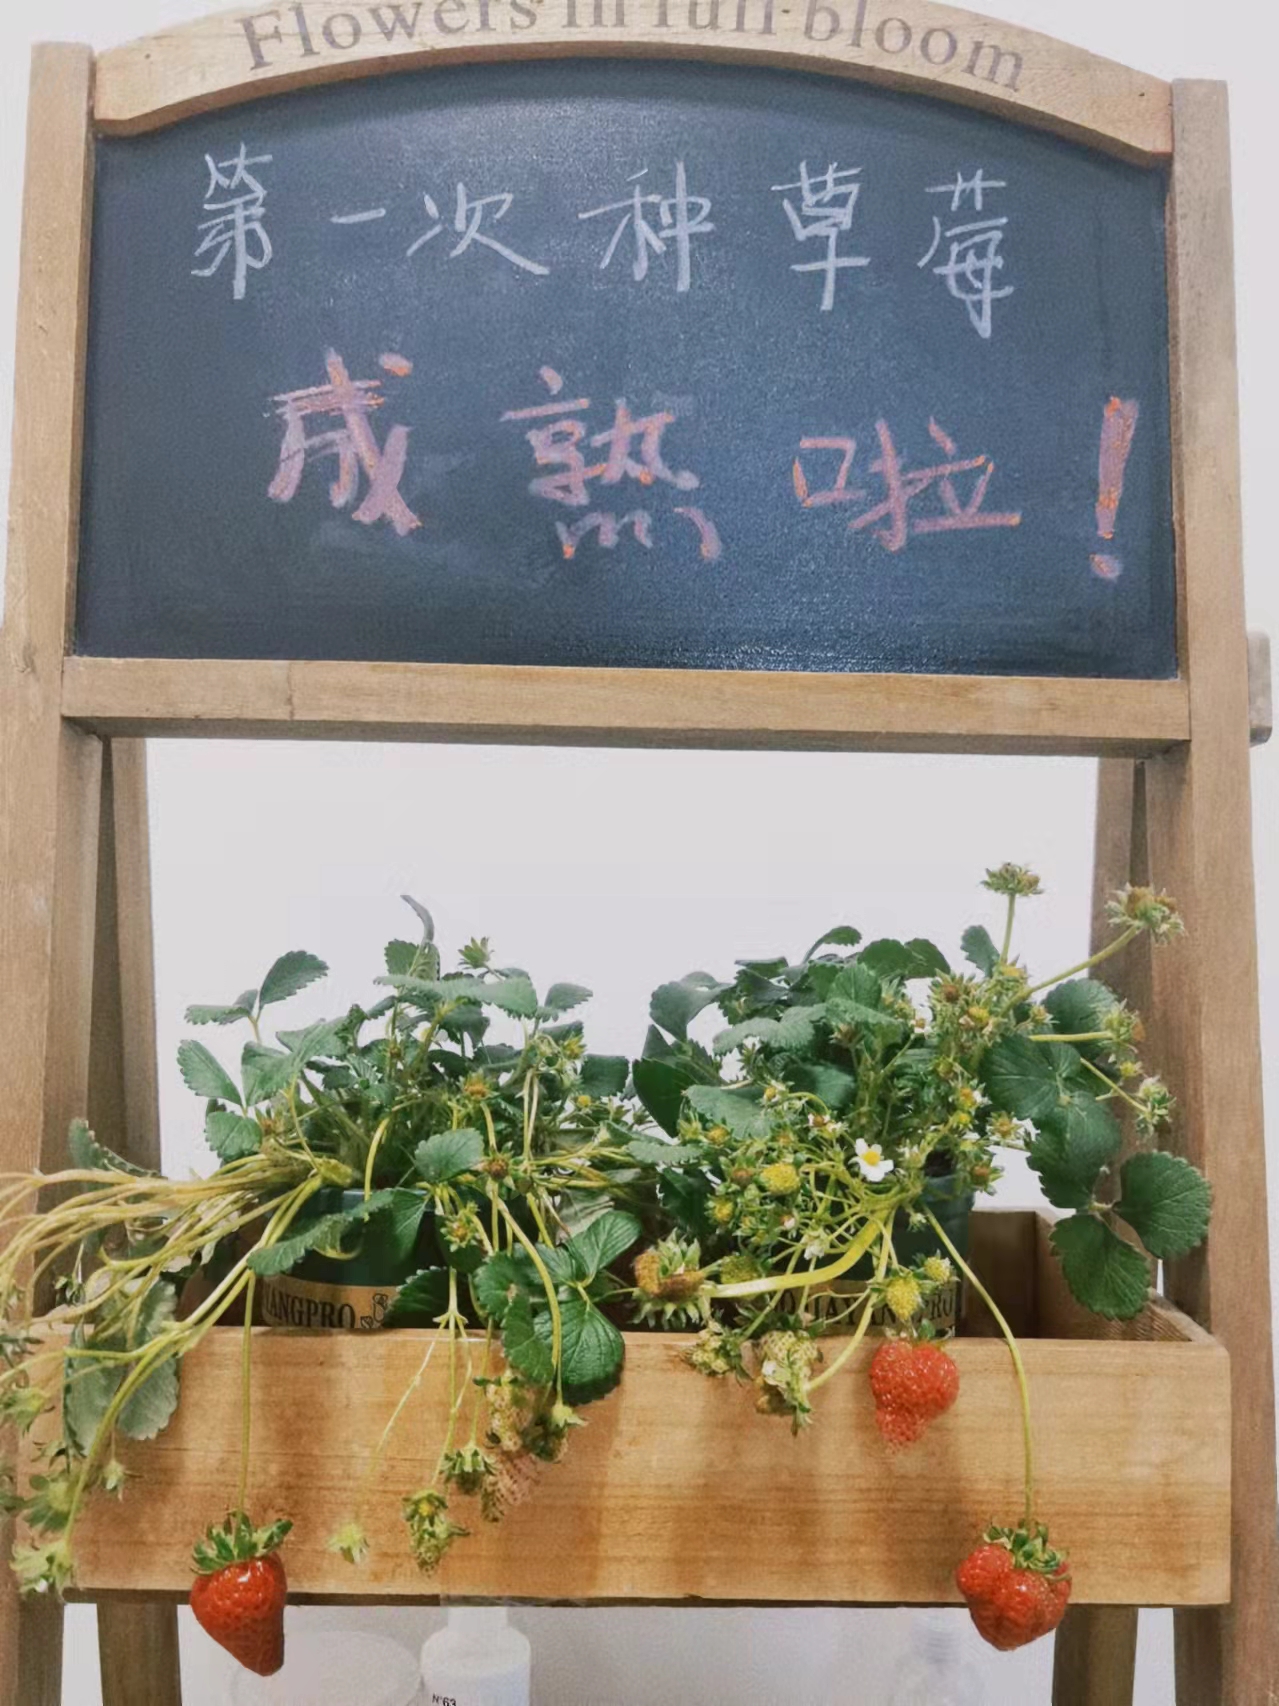 Flowers in full bloom
第一次种草莓
成熟啦！
IANGPRO
N°63